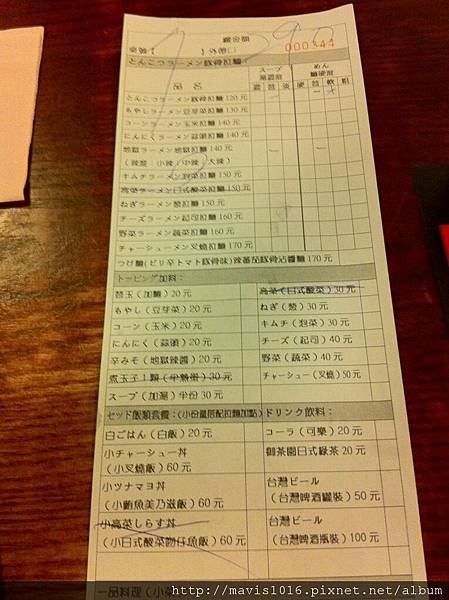 000344
とんこつラーメン豚骨拉麵
品名
スープ
湯濃度
めん
麵硬度
濃 普 淡 硬 普 軟 粗
とんこつラーメン豚骨拉麵 120元
もやしラーメン豆芽菜拉麵 130元
コーンラーメン玉米拉麵 140元
にんにくラーメン蒜頭拉麵 140元
地獄ラーメン地獄拉麵 140元
(辣度：小辣，中辣，大辣)
キムチラーメン泡菜拉麵 150元
高菜ラーメン日式酸菜拉麵 150元
ねぎラーメン蔥拉麵 150元
チーズラーメン起司拉麵 160元
野菜ラーメン蔬菜拉麵 160元
チャーシューメン叉燒拉麵 170元
つけ麵(ピリ辛トマト豚骨味)辣番茄豚骨沾醬麵 170元
トッピング加料：
替玉（加麵）20元
高菜（日式酸菜）30元
もやし（豆芽菜）20元
ねぎ（蔥）30元
コーン（玉米）20元
キムチ（泡菜）30元
にんにく（蒜頭）20元
チーズ（起司）40元
辛みそ（地獄辣醬）20元
野菜（蔬菜）40元
煮玉子1顆（半熟蛋）30元
チャーシュー（叉燒）50元
スープ（加湯）半份 30元
セッド飯類套餐：(小份量搭配拉麵加點)
ドリンク飲料：
白ごはん（白飯）20元
コーラ（可樂）20元
小チャーシュー丼
（小叉燒飯）60元
御茶園日式綠茶 20元
小ツナマヨ丼
（小鮪魚美乃滋飯）60元
台灣ビール
（台灣啤酒罐裝）50元
小高菜しらす丼
（小日式酸菜吻仔魚飯）60元
台灣ビール
（台灣啤酒瓶裝）100元
http://mavis1016.pixnet.net/album